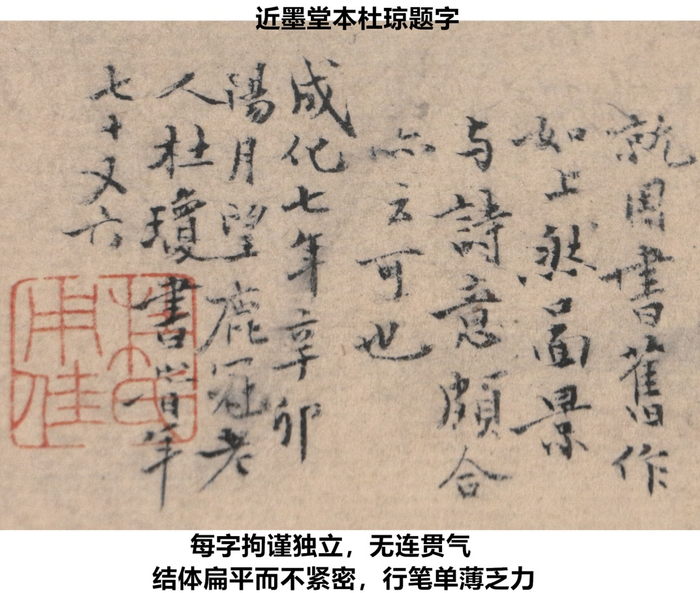 近墨堂本杜琼题字
就因書舊作
如上然啚景
与詩意頗合
亦云可也
成化七年辛卯
陽月望鹿冠老
人杜瓊書旹年
七十又六
每字拘谨独立，无连贯气
结体扁平而不紧密，行笔单薄乏力